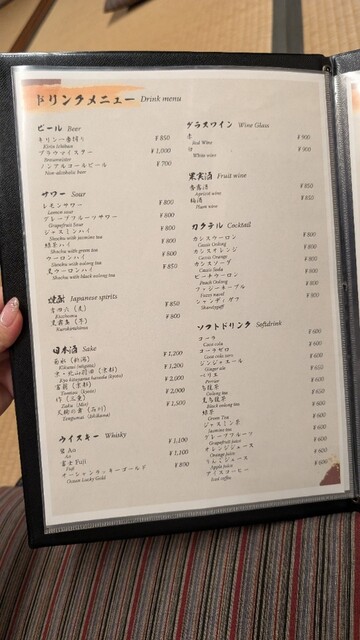 ドリンクメニュー Drink menu
ビール Beer
キリン一番搾り ¥850
Kirin Ichiban
ブラウマイスター ¥1,000
Braumeister
ノンアルコールビール ¥700
Non-alcoholic beer
サワー Sour
レモンサワー ¥800
Lemon sour
グレープフルーツサワー ¥800
Grapefruit Sour
ジャスミンハイ ¥800
Shochu with jasmine tea
緑茶ハイ ¥800
Shochu with green tea
ウーロンハイ ¥800
Shochu with oolong tea
黒ウーロンハイ ¥850
Shochu with black oolong tea
焼酎 Japanese spirits
吉四六 (麦) ¥850
Kicchomu
黒霧島 (芋) ¥800
Kurokirishima
日本酒 Sake
¥1,200
¥1,200
¥2,000
¥2,000
¥1,500
ウイスキー Whisky
碧 Ao ¥1,100
Ao
富士 Fuji ¥1,100
Fuji
オーシャンラッキーゴールド ¥800
Ocean Lucky Gold
グラスワイン Wine Glass
赤 ¥900
Red Wine
白 ¥900
White wine
果実酒 Fruit wine
杏露酒 ¥850
Apricot wine
梅酒 ¥850
Plum wine
カクテル Cocktail
カシスウーロン ¥800
Cassis Oolong
カシスオレンジ ¥800
Cassis Orange
カシスソーダ ¥800
Cassis Soda
ピーチウーロン ¥800
Peach Oolong
ファジーネーブル ¥800
Fuzzy navel
シャンディガフ ¥800
Shandygaff
ソフトドリンク Softdrink
コーラ ¥600
Coca cola
コーラゼロ ¥600
Coca cola zero
ジンジャーエール ¥600
Ginger ale
ペリエ ¥600
Perrier
烏龍茶 ¥600
Oolong tea
黒烏龍茶 ¥600
Black oolong tea
緑茶 ¥600
Green Tea
ジャスミン茶 ¥600
Jasmine tea
グレープフルーツ ¥600
Grapefruit Juice
オレンジジュース ¥600
Orange Juice
りんごジュース ¥600
Apple Juice
アイスコーヒー ¥600
Iced coffee